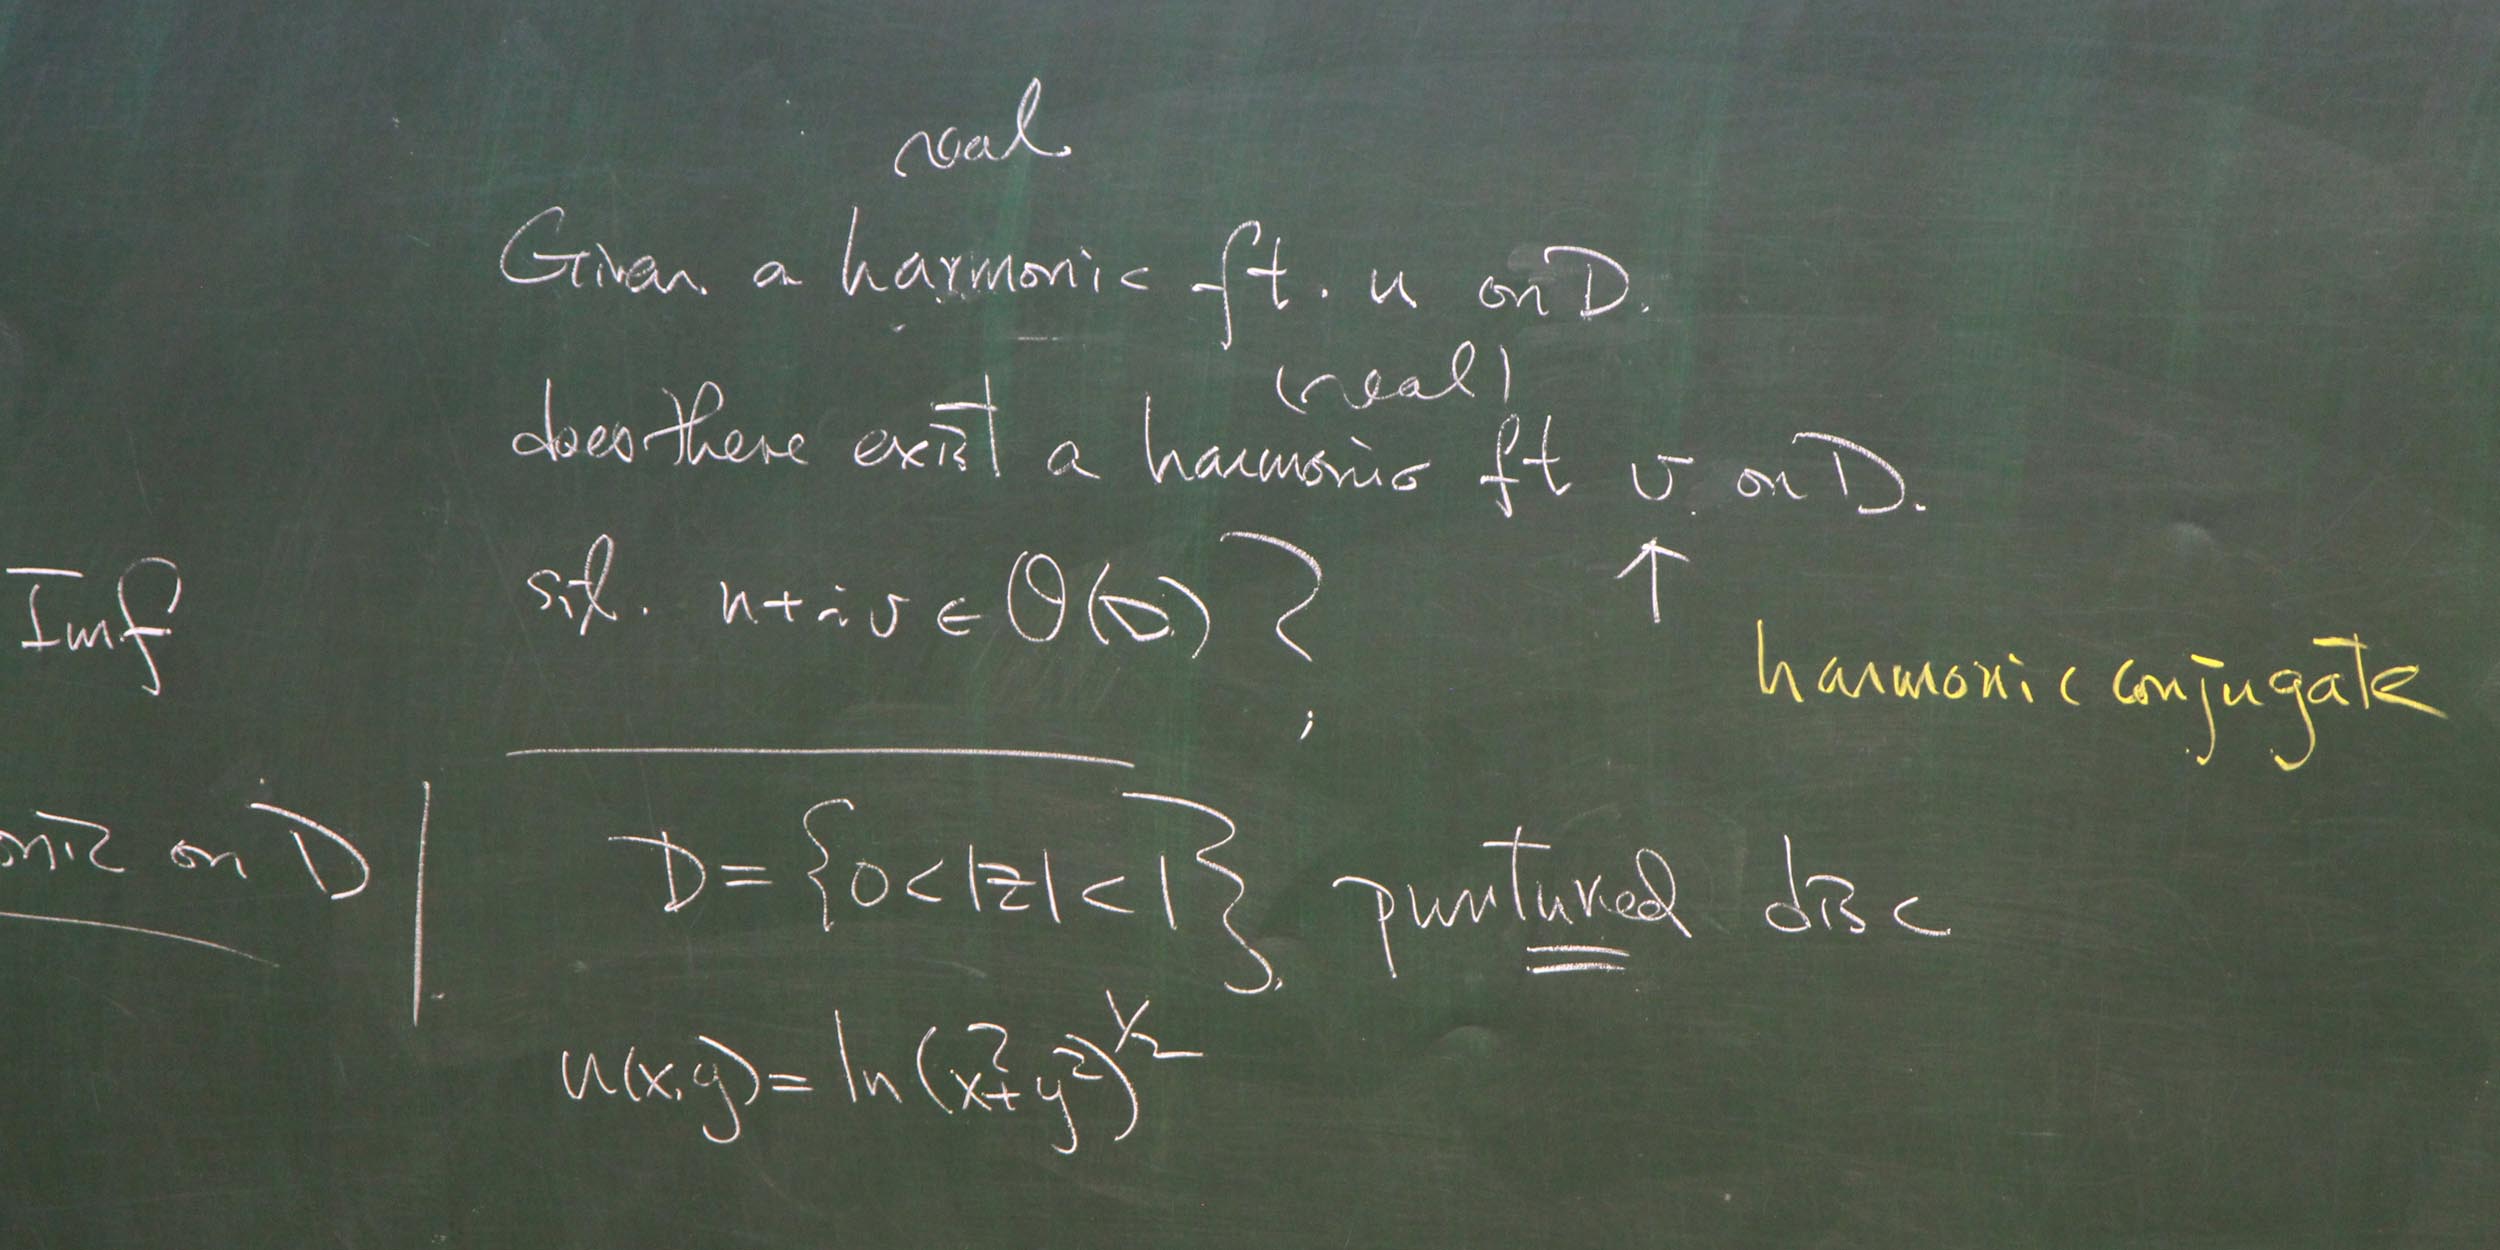 real
Given a harmonic ft. u on D.
(real)
does there exist a harmonic ft v on D.
s.t. u+iv ∈ O(D) ?
↑
harmonic conjugate
Imf
onic on D
D = {0<|z|<1}, puntured disc
u(x,y) = ln(x²+y²)^1/2